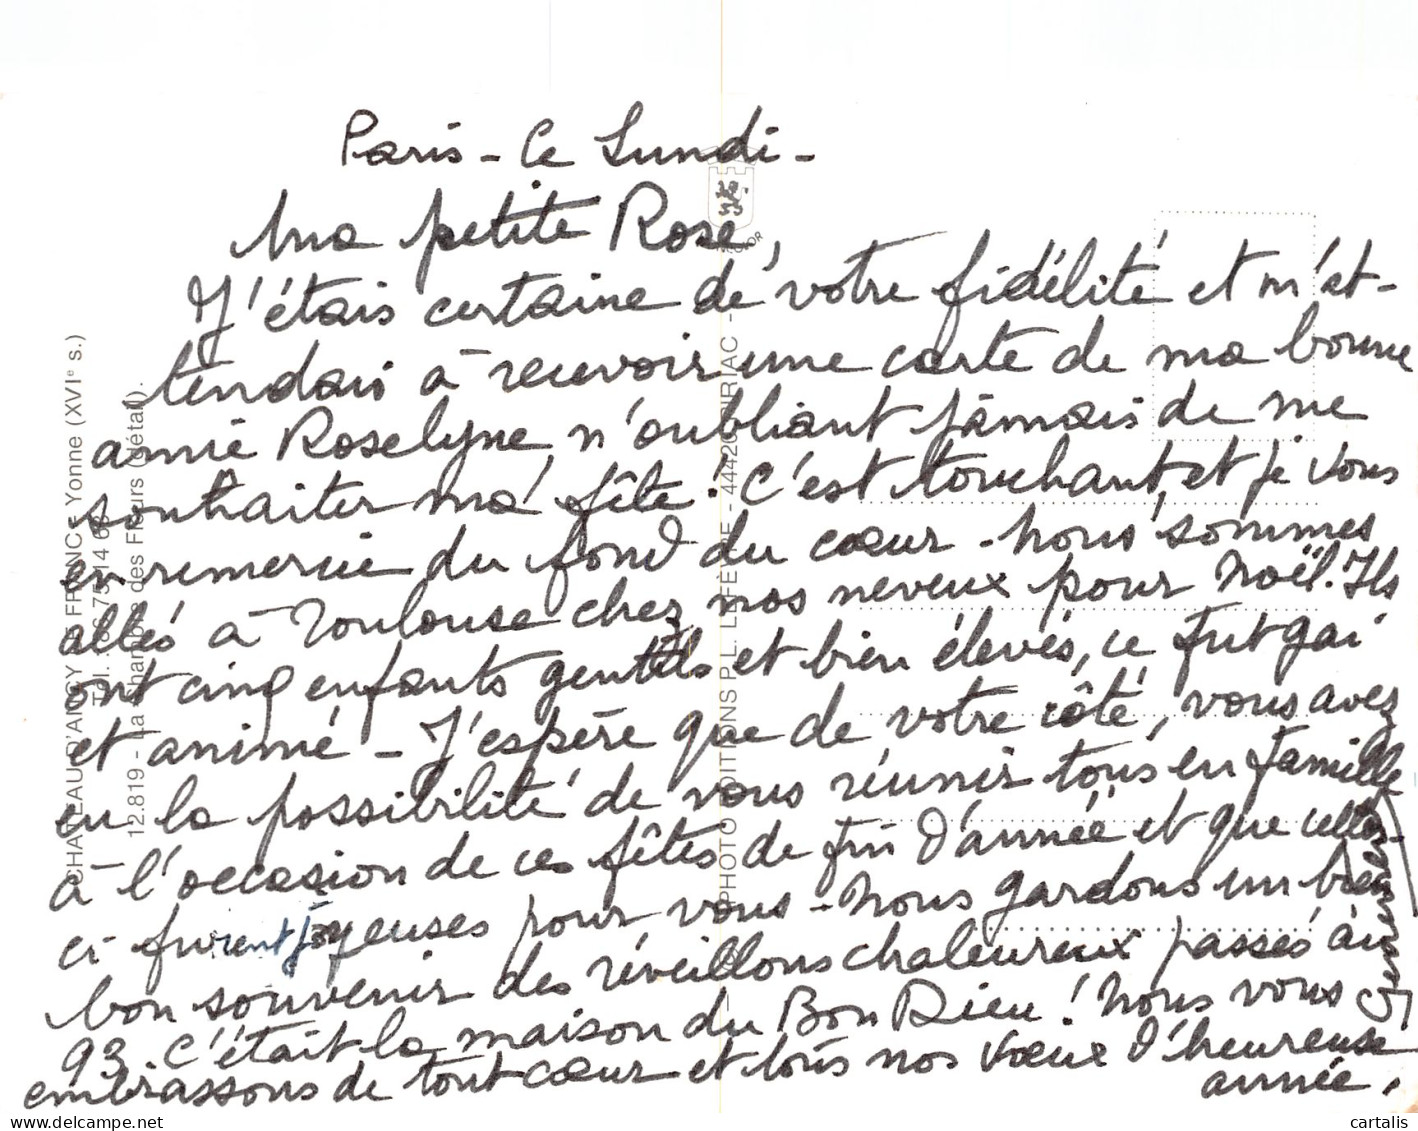 Paris - Ce Lundi -
Ma petite Rose,
J'étais certaine de votre fidélité et m'at-
tendais à recevoir une carte de ma bonne
amie Roselyne, n'oubliant jamais de me
souhaiter ma fête. C'est touchant, et je vous
en remercie du fond du cœur - Nous sommes
allés à Toulouse chez nos neveux pour Noël. Ils
ont cinq enfants gentils et bien élevés, ce fut gai
et animé - J'espère que de votre côté, vous avez
eu la possibilité de vous réunir tous en famille
à l'occasion de ces fêtes de fin d'année et que celles-
ci furent joyeuses pour vous - Nous gardons un bien
bon souvenir des réveillons chaleureux passés au
93. C'était la maison du Bon Dieu ! Nous vous
embrassons de tout cœur et tous nos vœux d'heureuse
année.
CHATEAU D'ANCY LE FRANC - Yonne (XVIe s.)
12.819 - La Chambre des Fleurs (détail).
PHOTO EDITIONS P.L. LEFEVRE - 44420 PIRIAC -
cartalis